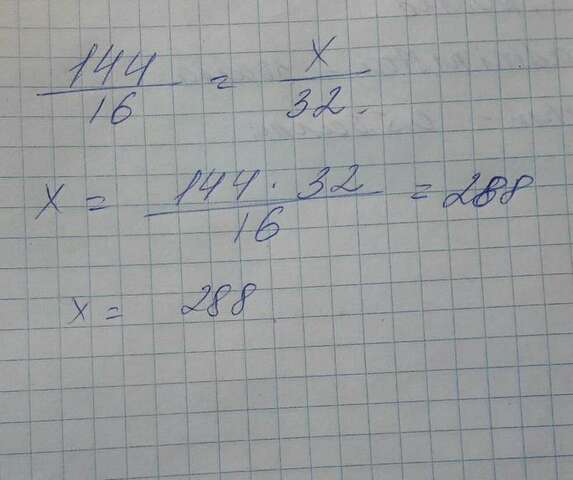 144/16 = x/32.
x = 144 · 32/16 = 288
x = 288